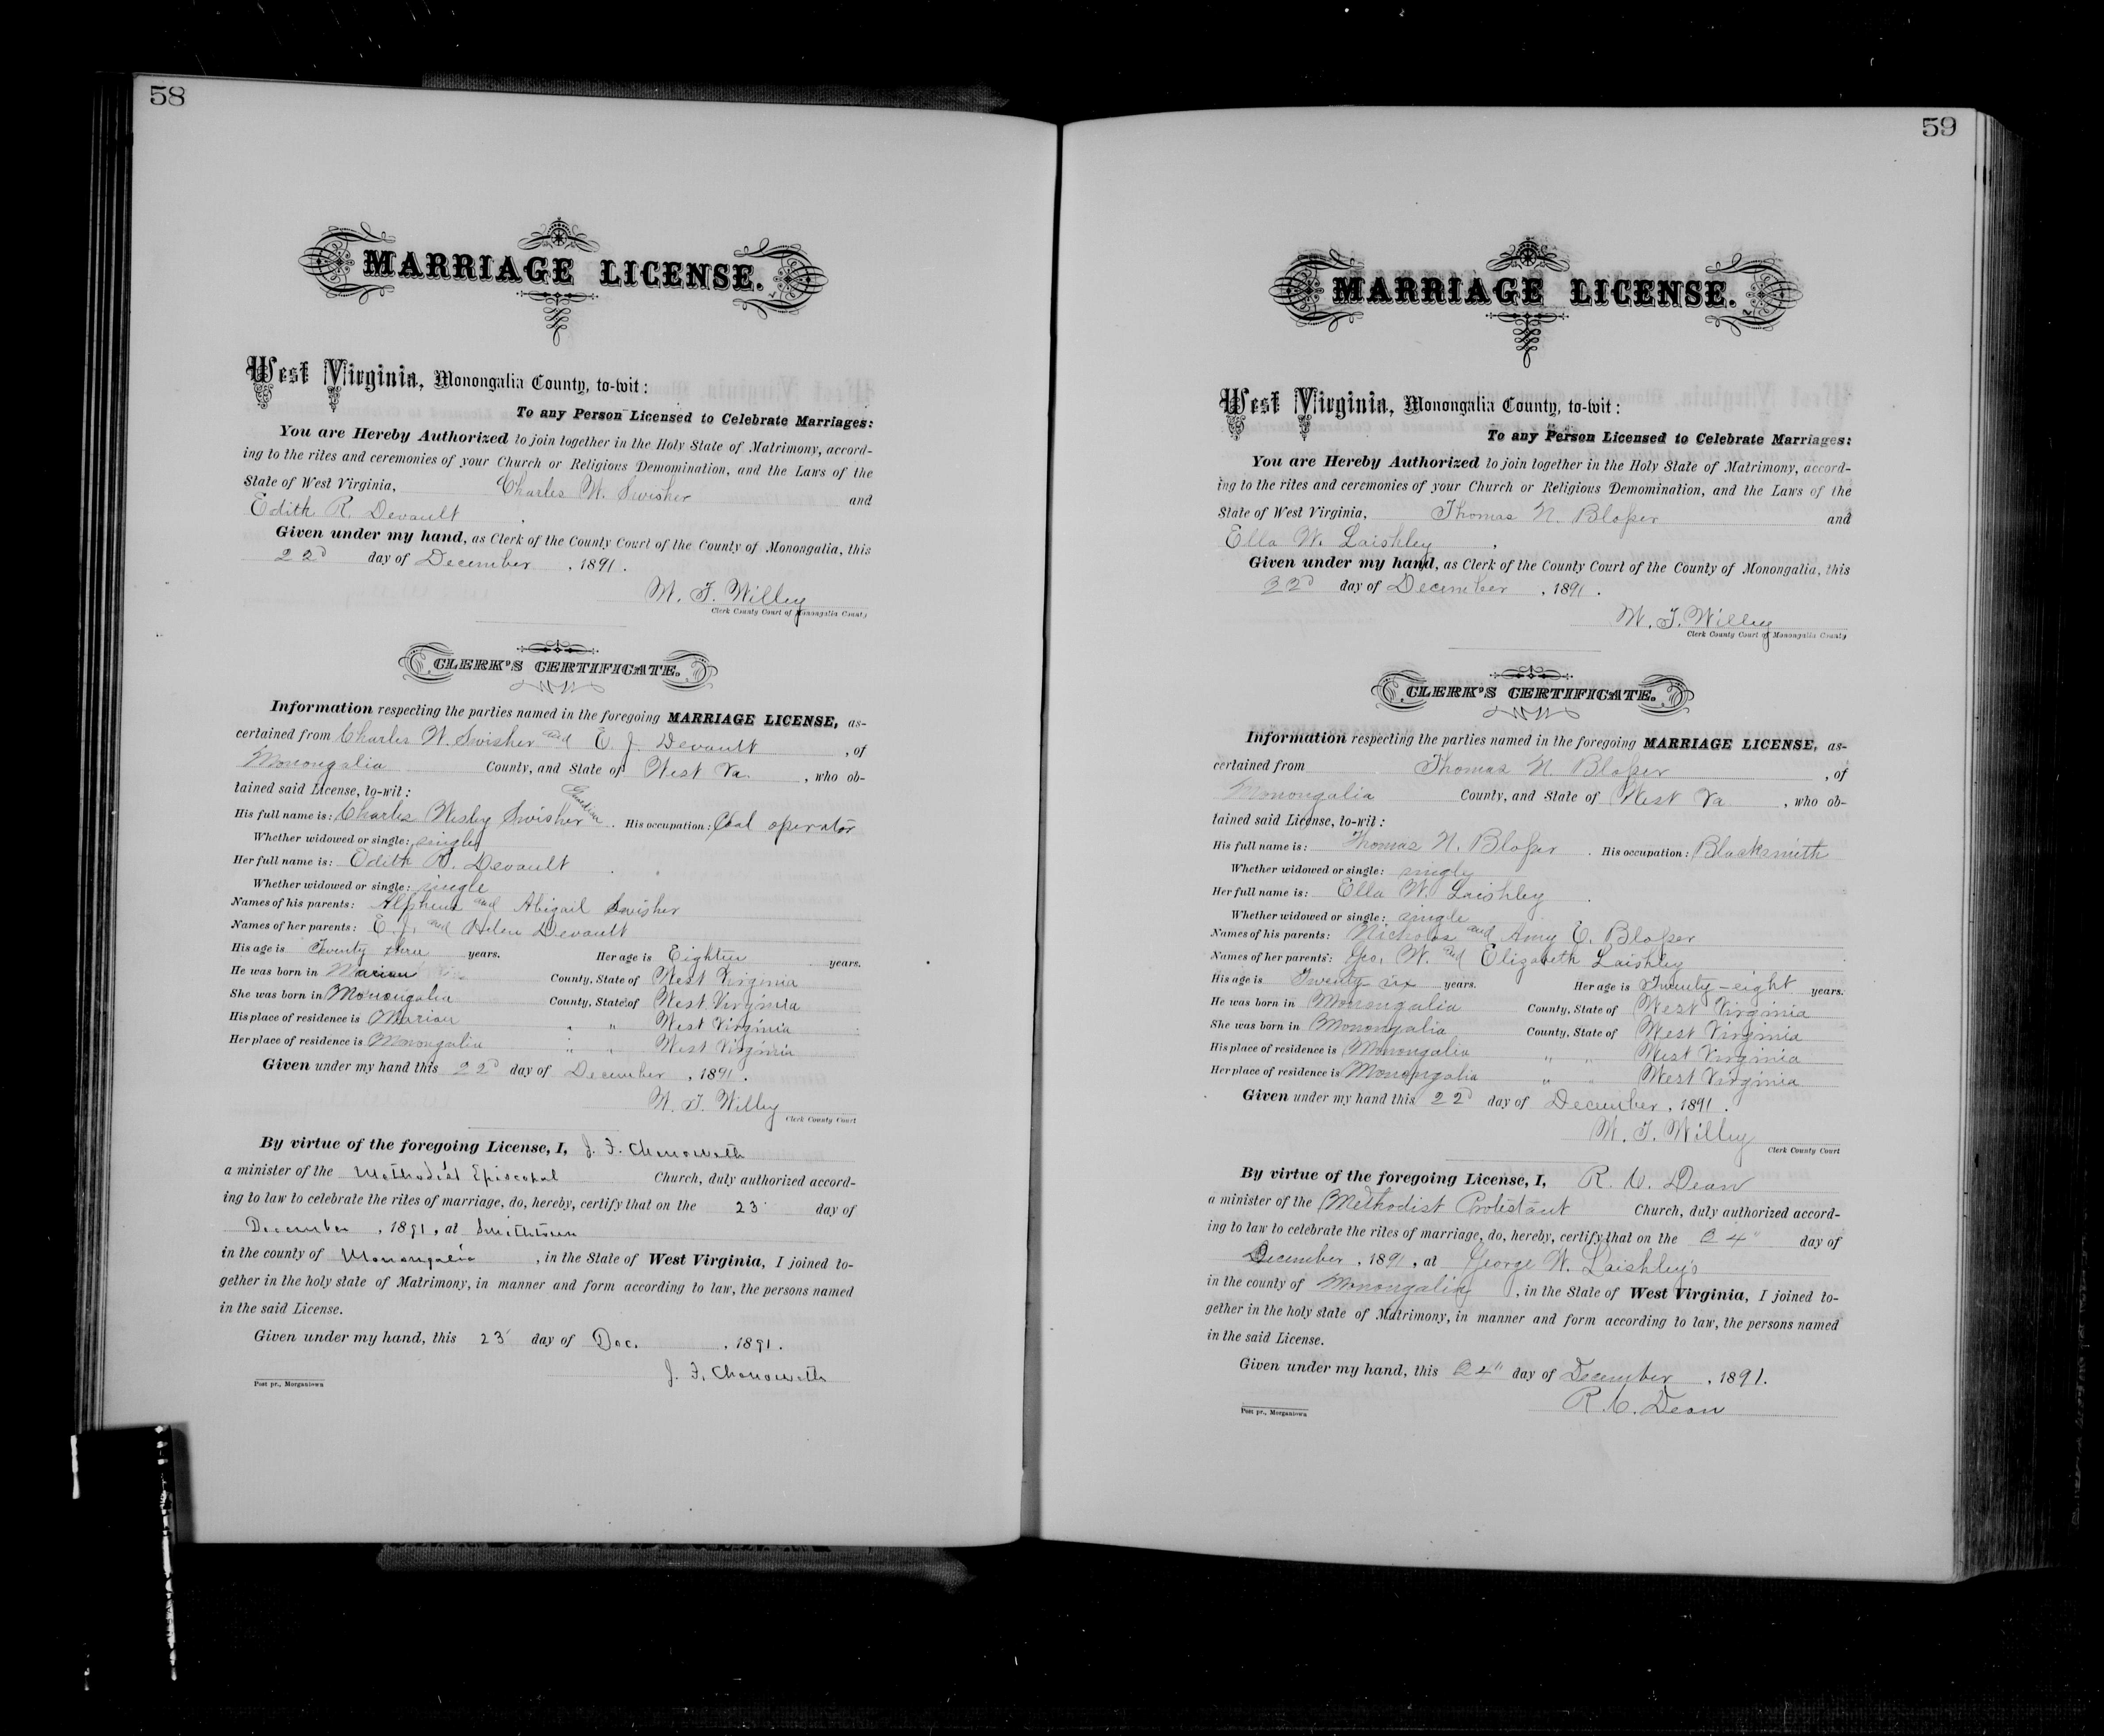 58
MARRIAGE LICENSE.
West Virginia, Monongalia County, to-wit:
To any Person Licensed to Celebrate Marriages:
You are Hereby Authorized to join together in the Holy State of Matrimony, accord-
ing to the rites and ceremonies of your Church or Religious Demomination, and the Laws of the
State of West Virginia, Charles W. Swisher and
Edith R. Devault
Given under my hand, as Clerk of the County Court of the County of Monongalia, this
22d day of December, 1891.
W. T. Willey
Clerk County Court of Monongalia County
CLERK'S CERTIFICATE.
Information respecting the parties named in the foregoing MARRIAGE LICENSE, as-
certained from Charles W. Swisher and E. J. Devault, of
Monongalia County, and State of West Va., who ob-
tained said License, to-wit:
His full name is: Charles Wesley Swisher. His occupation: Coal operator
Whether widowed or single: single
Her full name is: Edith R. Devault.
Whether widowed or single: single
Names of his parents: Alpheus and Abigail Swisher
Names of her parents: E. J. and Helen Devault
His age is Twenty three years. Her age is Eighteen years.
He was born in Marion County, State of West Virginia
She was born in Monongalia County, State of West Virginia
His place of residence is Marion " " West Virginia
Her place of residence is Monongalia " " West Virginia
Given under my hand this 22d day of December, 1891.
W. T. Willey
Clerk County Court
By virtue of the foregoing License, I, J. F. Chenoweth
a minister of the Methodist Episcopal Church, duly authorized accord-
ing to law to celebrate the rites of marriage, do, hereby, certify that on the 23 day of
December, 1891, at Smithtown
in the county of Monongalia, in the State of West Virginia, I joined to-
gether in the holy state of Matrimony, in manner and form according to law, the persons named
in the said License.
Given under my hand, this 23 day of Dec., 1891.
J. F. Chenoweth
Post pr., Morgantown
59
MARRIAGE LICENSE.
West Virginia, Monongalia County, to-wit:
To any Person Licensed to Celebrate Marriages:
You are Hereby Authorized to join together in the Holy State of Matrimony, accord-
ing to the rites and ceremonies of your Church or Religious Demomination, and the Laws of the
State of West Virginia, Thomas N. Bloſser and
Ella W. Laishley,
Given under my hand, as Clerk of the County Court of the County of Monongalia, this
22d day of December, 1891.
W. T. Willey
Clerk County Court of Monongalia County
CLERK'S CERTIFICATE.
Information respecting the parties named in the foregoing MARRIAGE LICENSE, as-
certained from Thomas N. Bloſser, of
Monongalia County, and State of West Va, who ob-
tained said License, to-wit:
His full name is: Thomas N. Bloſser. His occupation: Blacksmith
Whether widowed or single: single
Her full name is: Ella W. Laishley.
Whether widowed or single: single
Names of his parents: Nicholas and Amy E. Bloſser
Names of her parents: Geo. W. and Elizabeth Laishley
His age is Twenty six years. Her age is Twenty-eight years.
He was born in Monongalia County, State of West Virginia
She was born in Monongalia County, State of West Virginia
His place of residence is Monongalia " " West Virginia
Her place of residence is Monongalia " " West Virginia
Given under my hand this 22d day of December, 1891.
W. T. Willey
Clerk County Court
By virtue of the foregoing License, I, Dean
a minister of the Methodist Protestant Church, duly authorized accord-
ing to law to celebrate the rites of marriage, do, hereby, certify that on the 24" day of
December, 1891, at George W. Laishley's
in the county of Monongalia, in the State of West Virginia, I joined to-
gether in the holy state of Matrimony, in manner and form according to law, the persons named
in the said License.
Given under my hand, this 24" day of December, 1891.
Dean
Post pr., Morgantown